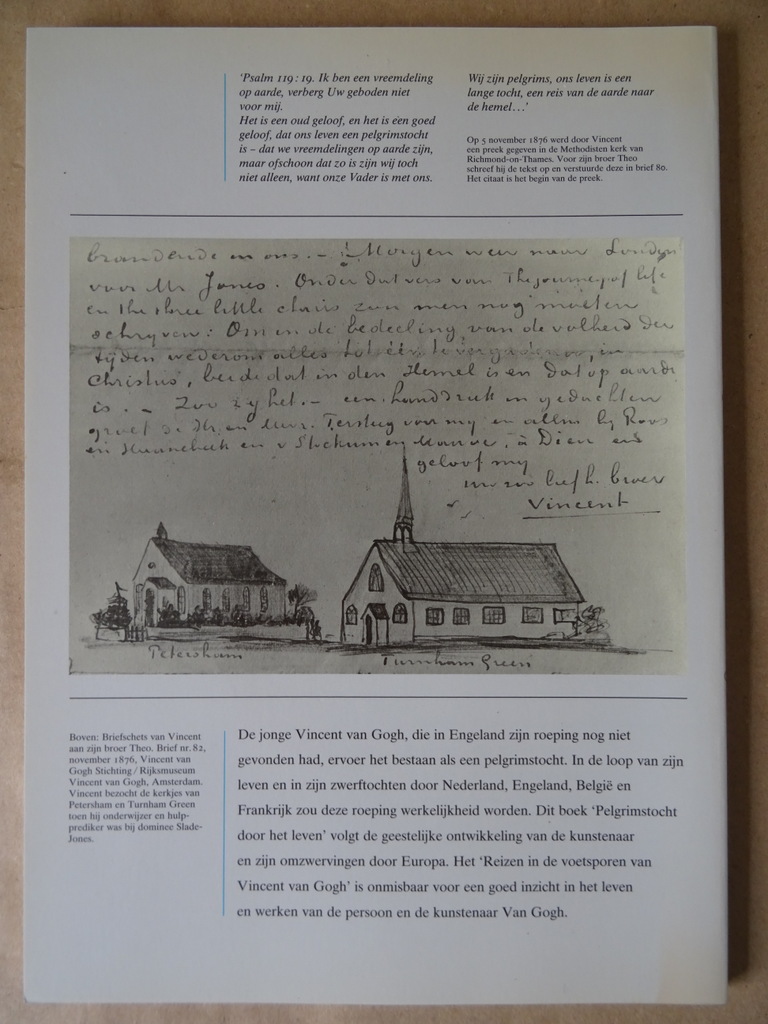 'Psalm 119:19. Ik ben een vreemdeling
op aarde, verberg Uw geboden niet
voor mij.
Het is een oud geloof, en het is een goed
geloof, dat ons leven een pelgrimstocht
is – dat we vreemdelingen op aarde zijn,
maar ofschoon dat zo is zijn wij toch
niet alleen, want onze Vader is met ons.
Wij zijn pelgrims, ons leven is een
lange tocht, een reis van de aarde naar
de hemel…'
Op 5 november 1876 werd door Vincent
een preek gegeven in de Methodisten kerk van
Richmond-on-Thames. Voor zijn broer Theo
schreef hij de tekst op en verstuurde deze in brief 80.
Het citaat is het begin van de preek.
brandende in ons. – Morgen weer naar Londen
voor Mr Jones. Onder dat vers van The journey of life
en The three little chairs zou men nog moeten
schryven: Om in de bedeeling van de volheid der
tyden wederom alles tot één te vergaderen, in
Christus, beide dat in den Hemel is en dat op aarde
is. – Zoo zy het. – een handdruk in gedachten
groet Mr. en Mevr. Tersteeg voor my en allen by Roos
en Haanebeek en v Stockum en Mauve,
geloof my
uw zoo liefh. broer
Vincent
Petersham
Turnham Green
Boven: Briefschets van Vincent
aan zijn broer Theo. Brief nr. 82,
november 1876, Vincent van
Gogh Stichting / Rijksmuseum
Vincent van Gogh, Amsterdam.
Vincent bezocht de kerkjes van
Petersham en Turnham Green
toen hij onderwijzer en hulp-
prediker was bij dominee Slade-
Jones.
De jonge Vincent van Gogh, die in Engeland zijn roeping nog niet
gevonden had, ervoer het bestaan als een pelgrimstocht. In de loop van zijn
leven en in zijn zwerftochten door Nederland, Engeland, België en
Frankrijk zou deze roeping werkelijkheid worden. Dit boek 'Pelgrimstocht
door het leven' volgt de geestelijke ontwikkeling van de kunstenaar
en zijn omzwervingen door Europa. Het 'Reizen in de voetsporen van
Vincent van Gogh' is onmisbaar voor een goed inzicht in het leven
en werken van de persoon en de kunstenaar Van Gogh.